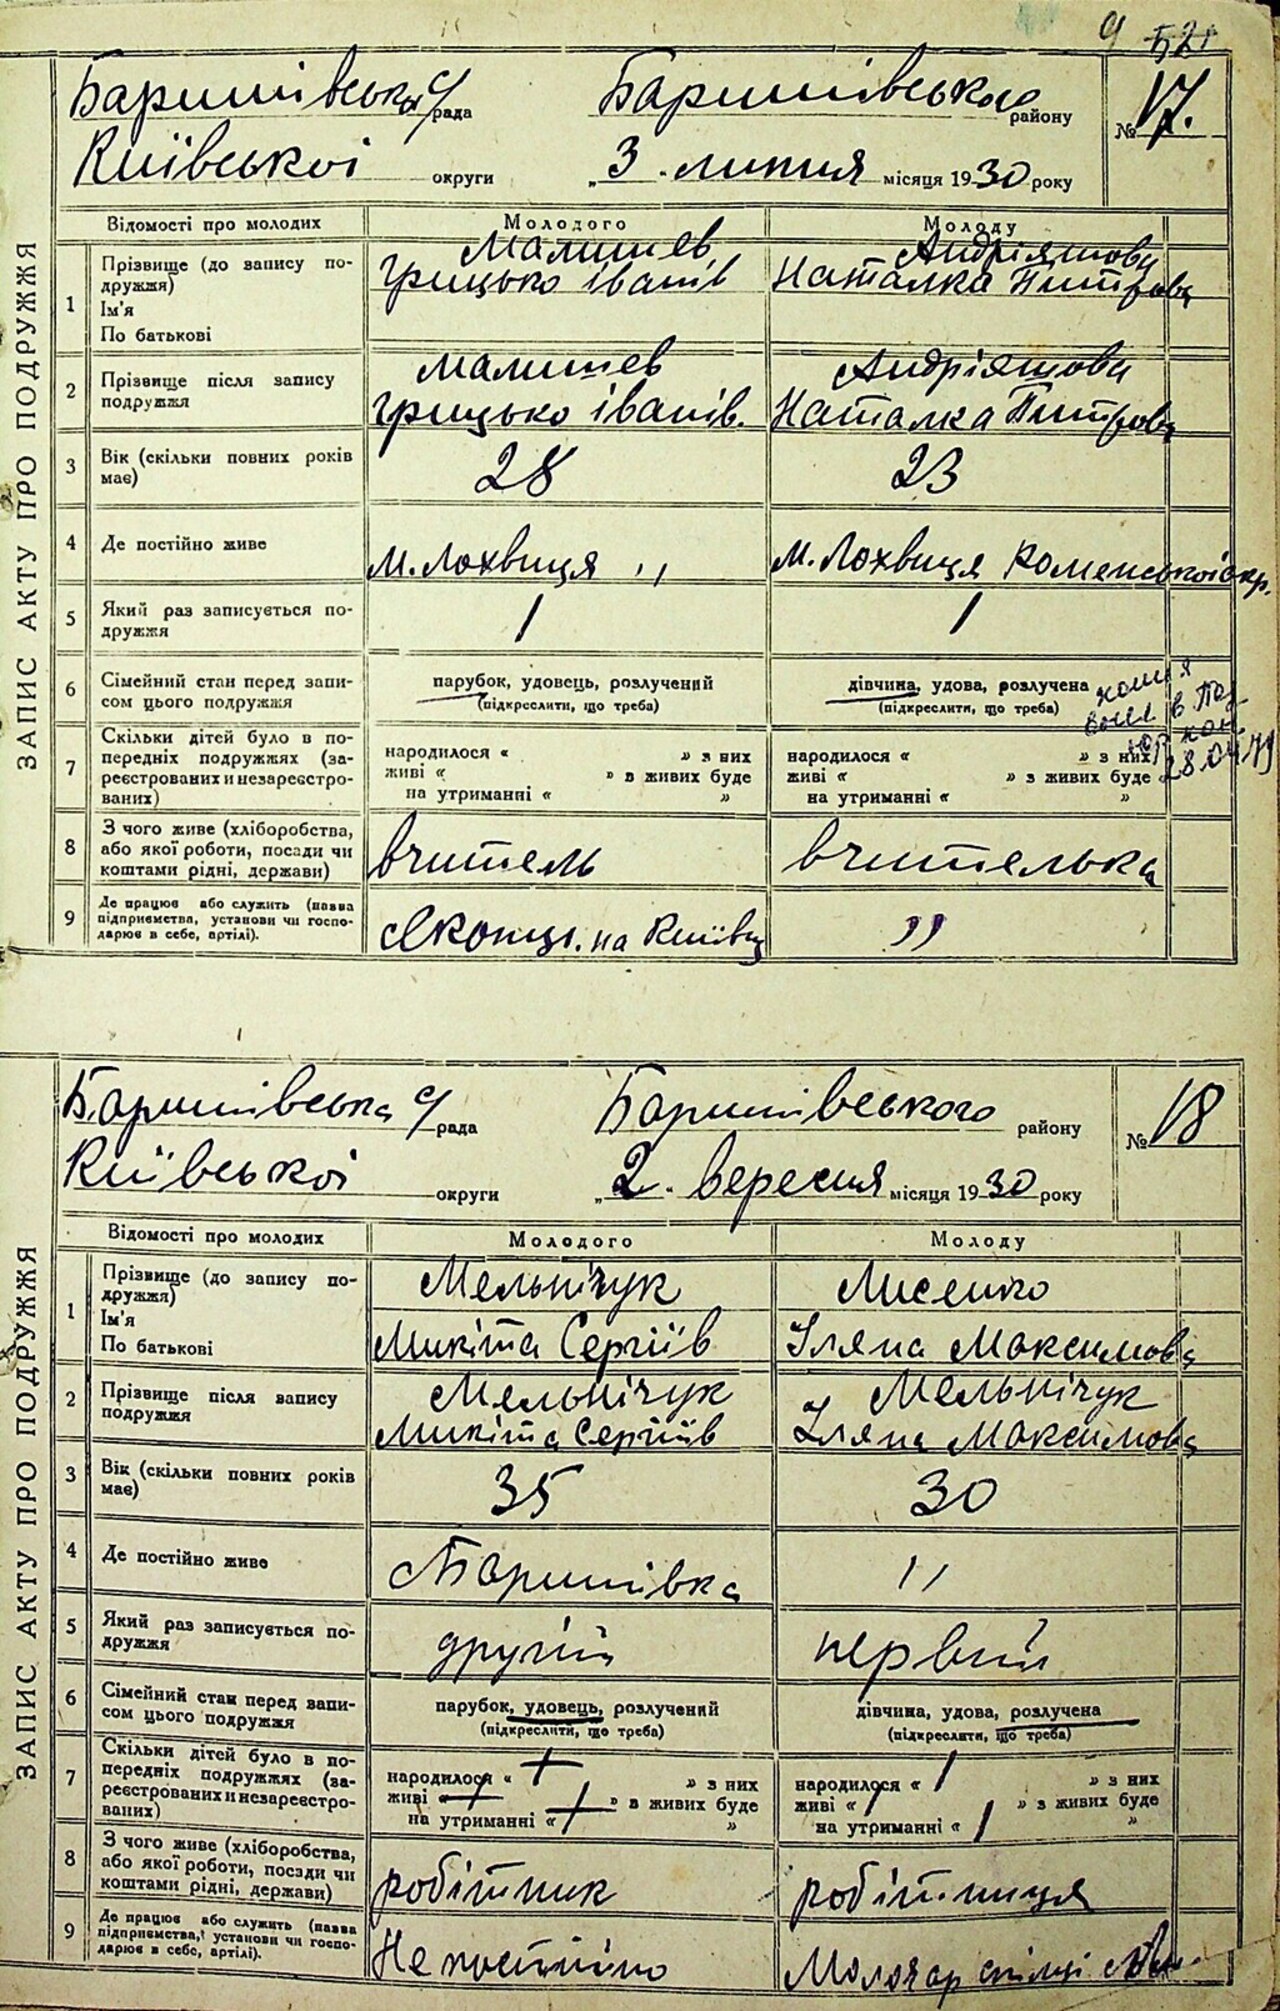 9 521
Баришівська с/рада Баришівського району № 17.
Київської округи „3“ липня місяця 1930 року
ЗАПИС АКТУ ПРО ПОДРУЖЖЯ
Відомості про молодих Молодого Молоду
1 Прізвище (до запису по-
дружжя)
Ім'я
По батькові
Малишев
Грицько Іванів
Андріяшова
Наталка Питрова
2 Прізвище після запису
подружжя
Малишев
Грицько Іванів.
Андріяшова
Наталка Питрова
3 Вік (скільки повних років
має)
28 23
4 Де постійно живе
м. Лохвиця " м. Лохвиця Роменської окр.
5 Який раз записується по-
дружжя
1 1
6 Сімейний стан перед запи-
сом цього подружжя
парубок, удовець, розлучений
(підкреслити, що треба)
дівчина, удова, розлучена
(підкреслити, що треба)
28.04.79
7 Скільки дітей було в по-
передніх подружжях (за-
реєстрованих и незареєстро-
ваних)
народилося « » з них
живі « » в живих буде
на утриманні « »
народилося « » з них
живі « » з живих буде
на утриманні « »
8 З чого живе (хліборобства,
або якої роботи, посади чи
коштами рідні, держави)
вчитель вчителька
9 Де працює або служить (назва
підприємства, установи чи госпо-
дарює в себе, артілі).
на Київщ "
Баришівська с/рада Баришівського району № 18
Київської округи „2“ вересня місяця 1930 року
ЗАПИС АКТУ ПРО ПОДРУЖЖЯ
Відомості про молодих Молодого Молоду
1 Прізвище (до запису по-
дружжя)
Ім'я
По батькові
Мельнічук
Микіта Сергіїв
Лисенко
Уляна Максимова
2 Прізвище після запису
подружжя
Мельнічук
Микіта Сергіїв
Мельнічук
Уляна Максимова
3 Вік (скільки повних років
має)
35 30
4 Де постійно живе
Баришівка "
5 Який раз записується по-
дружжя
другій первий
6 Сімейний стан перед запи-
сом цього подружжя
парубок, удовець, розлучений
(підкреслити, що треба)
дівчина, удова, розлучена
(підкреслити, що треба)
7 Скільки дітей було в по-
передніх подружжях (за-
реєстрованих и незареєстро-
ваних)
народилося « » з них
живі « » в живих буде
на утриманні « »
народилося « » з них
живі « » з живих буде
на утриманні « »
8 З чого живе (хліборобства,
або якої роботи, посади чи
коштами рідні, держави)
робітник робітниця
9 Де працює або служить (назва
підприємства, установи чи госпо-
дарює в себе, артілі).
Не постійно Молочар спілці